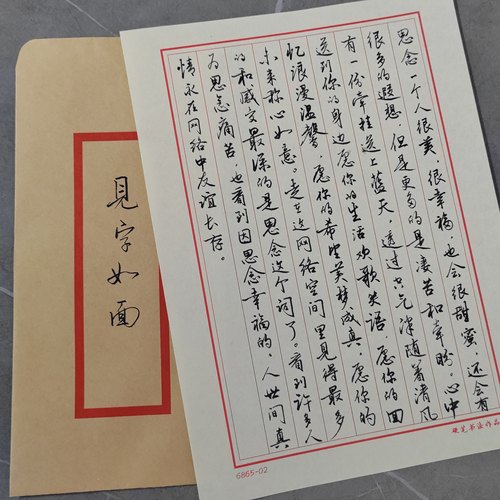 思念一个人很美，很幸福，也会很甜蜜，还会有
很多的遐想，但是更多的是凄苦和牵盼。心中
有一份牵挂送上蓝天，透过空气津随着清风
送到你的身边愿你的生活欢歌笑语，愿你的回
忆浪漫温馨，愿你的希望美梦成真，愿你的
未来称心如意。走在这网络空间里见得最多
的和感交最深的是思念这个词了。看到许多人
为思念痛苦，也看到因思念幸福的，人世间真
情永在网络中友谊长存。
硬笔书法作品
6865-02
見字如面